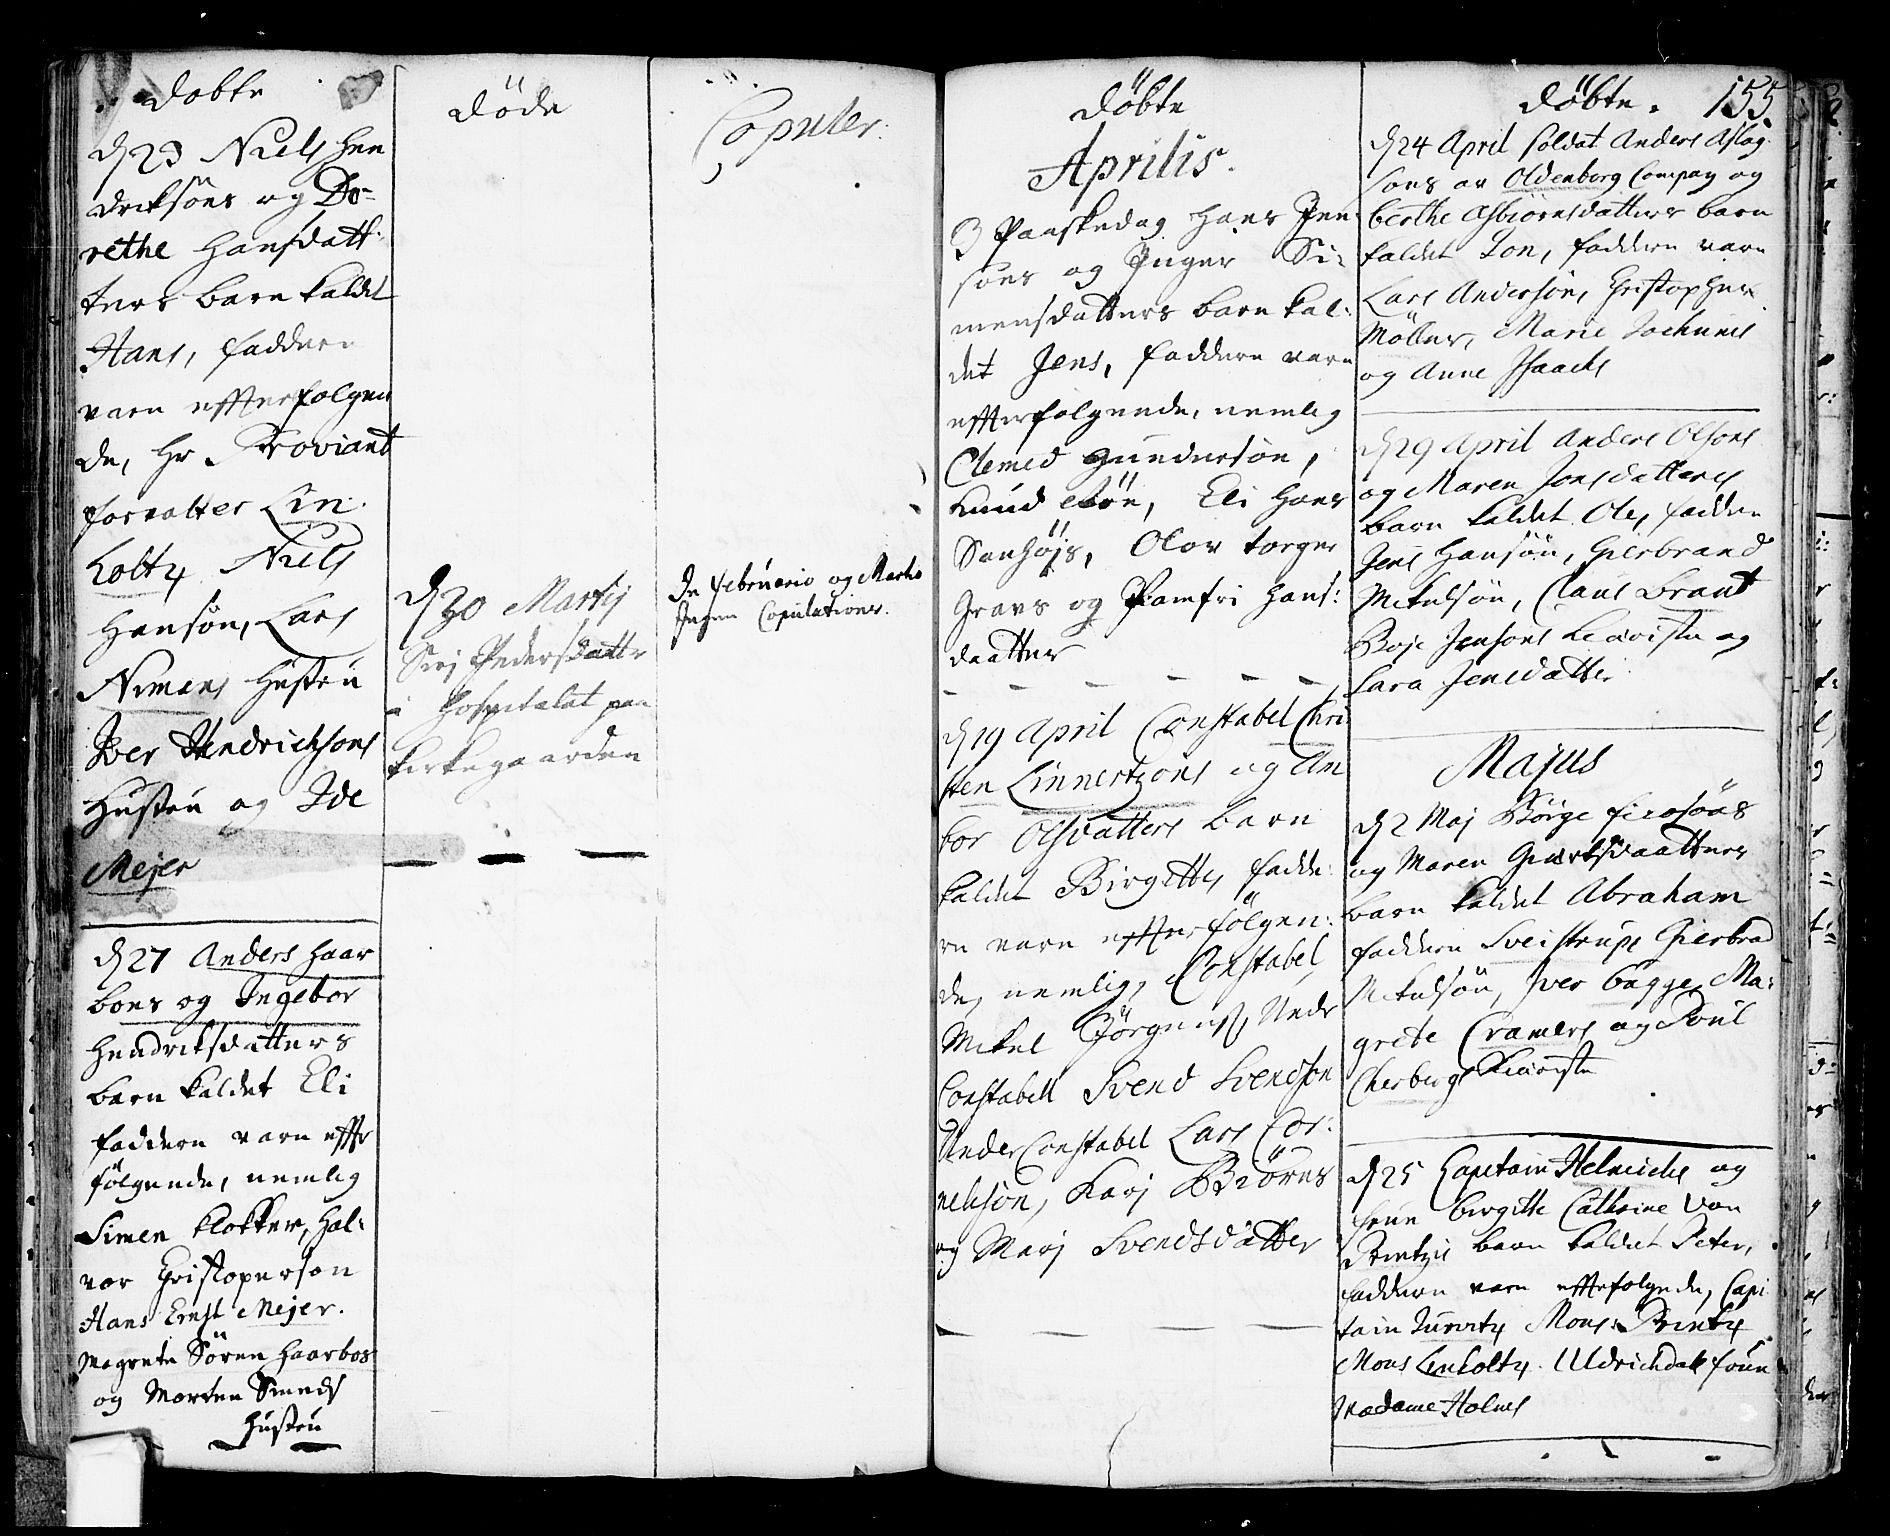 Døbte
d 23 Niels Hen
dricksöns og Do-
rethe Hansdatt:
ters barn kaldet
Hans, faddere
vare effterfølgen
de, Hr Proviant
forvalter Lin:
Koltz Niels
Hansøn, Lars
Nimans Hustru
Iver Hendrichsons
Hustru og Ide
Mejer
d 27 Anders Haar
boes og Ingebor
Hendricksdatters
barn kaldet Eli
faddere vare effter
følgende, nemlig
Simen Klokker, Hal-
vor Christopersøn
Hans Ernst Mejer.
Magrete Søren Haarbos
og Morten Smeds
Hustru
Døde
d 30 Martij
Siri Pedersdatter
i Hospitalet paa
Kirkegaarden
Copuler:
In Februario og Martio
Ingen Copulationer.
Døbte
Aprilis.
3 Paaskedag Hans Jen
søns og Inger Si-
mensdatters barn kal-
det Jens, faddere vare
effterfølgende, nemlig
Clemed Gundersøn,
Knud Eli Hans
Olov Torger
Gravs og Pamfri Hans:
daatter
d 19 April Constabel Chri
sten Linnertzons og An
bor Olsdatters barn
kaldet Birgitte, fadde-
re vare effterfølgen-
de, nemlig, Constabel
Mikel Jörgens, Under
Constabell Svend Svendson
Under Constabel Lars Cor-
nelisøn, Karj Biörns
og Marj Svendsdatter
Døbte. 155.
d 24 April Soldat Anders Aslag
sons av Oldenborg Compag og
Berthe Asbiørnsdatters barn
kaldet Jon, faddere vare
Lars Andersøn, Christopher
Møller, Marie Jochums
og Anne Isaachs
d 29 April Anders Olsons
og Maren Jonsdatters
barn kaldet Ole, faddere
Jens Hansøn, Gierbrand
Mikelsøn, Claus Brant
Boje Jensons Kieriste og
Sara Jensdatter
Majus
d 2 Maj Börge
og Maren Giertsdaatters
barn kaldet Abraham
faddere Sveistrups Gierbrad
Mikelsøn, Iver Bagge, Ma-
grete Cramers og Poul
Cherbergs Kieriste
d 25 Capitain Helmichs og
frue Birgitte Cathrine von
Printzis barn kaldet Peter,
faddere vare effterfølgende, Capi
tain Mons: Printz
Mons Linkoltz. Uldrichdals frue
Madame Holmes